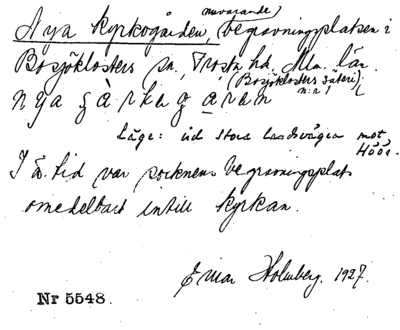 Nya kyrkogården, (nuvarande) begravningsplatsen i
Bosjöklosters sn, Frosta hd, Mlm. län.
(Bosjöklosters säteri) n:r 1
nya
Läge: vid stora landsvägen mot Höör.
I ä. tid var socknens begravningsplats
omedelbart intill kyrkan.
Einar Holmberg. 1927.
Nr 5548.